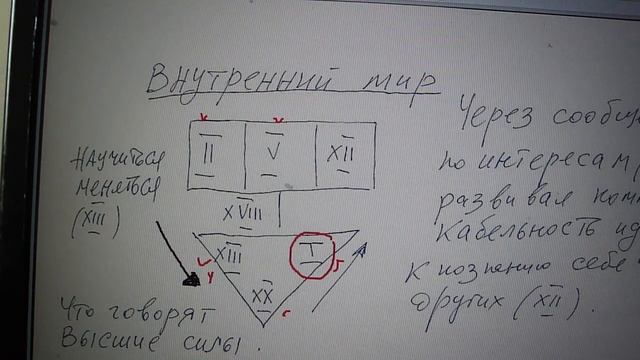 Внутренний мир
II V XII
XVIII
XIII I
XX
Научиться
меняться
(XIII)
Что говорят
Высшие силы.
Через сообщ
по интересам
развивая ком
к познению себе
других (XII).